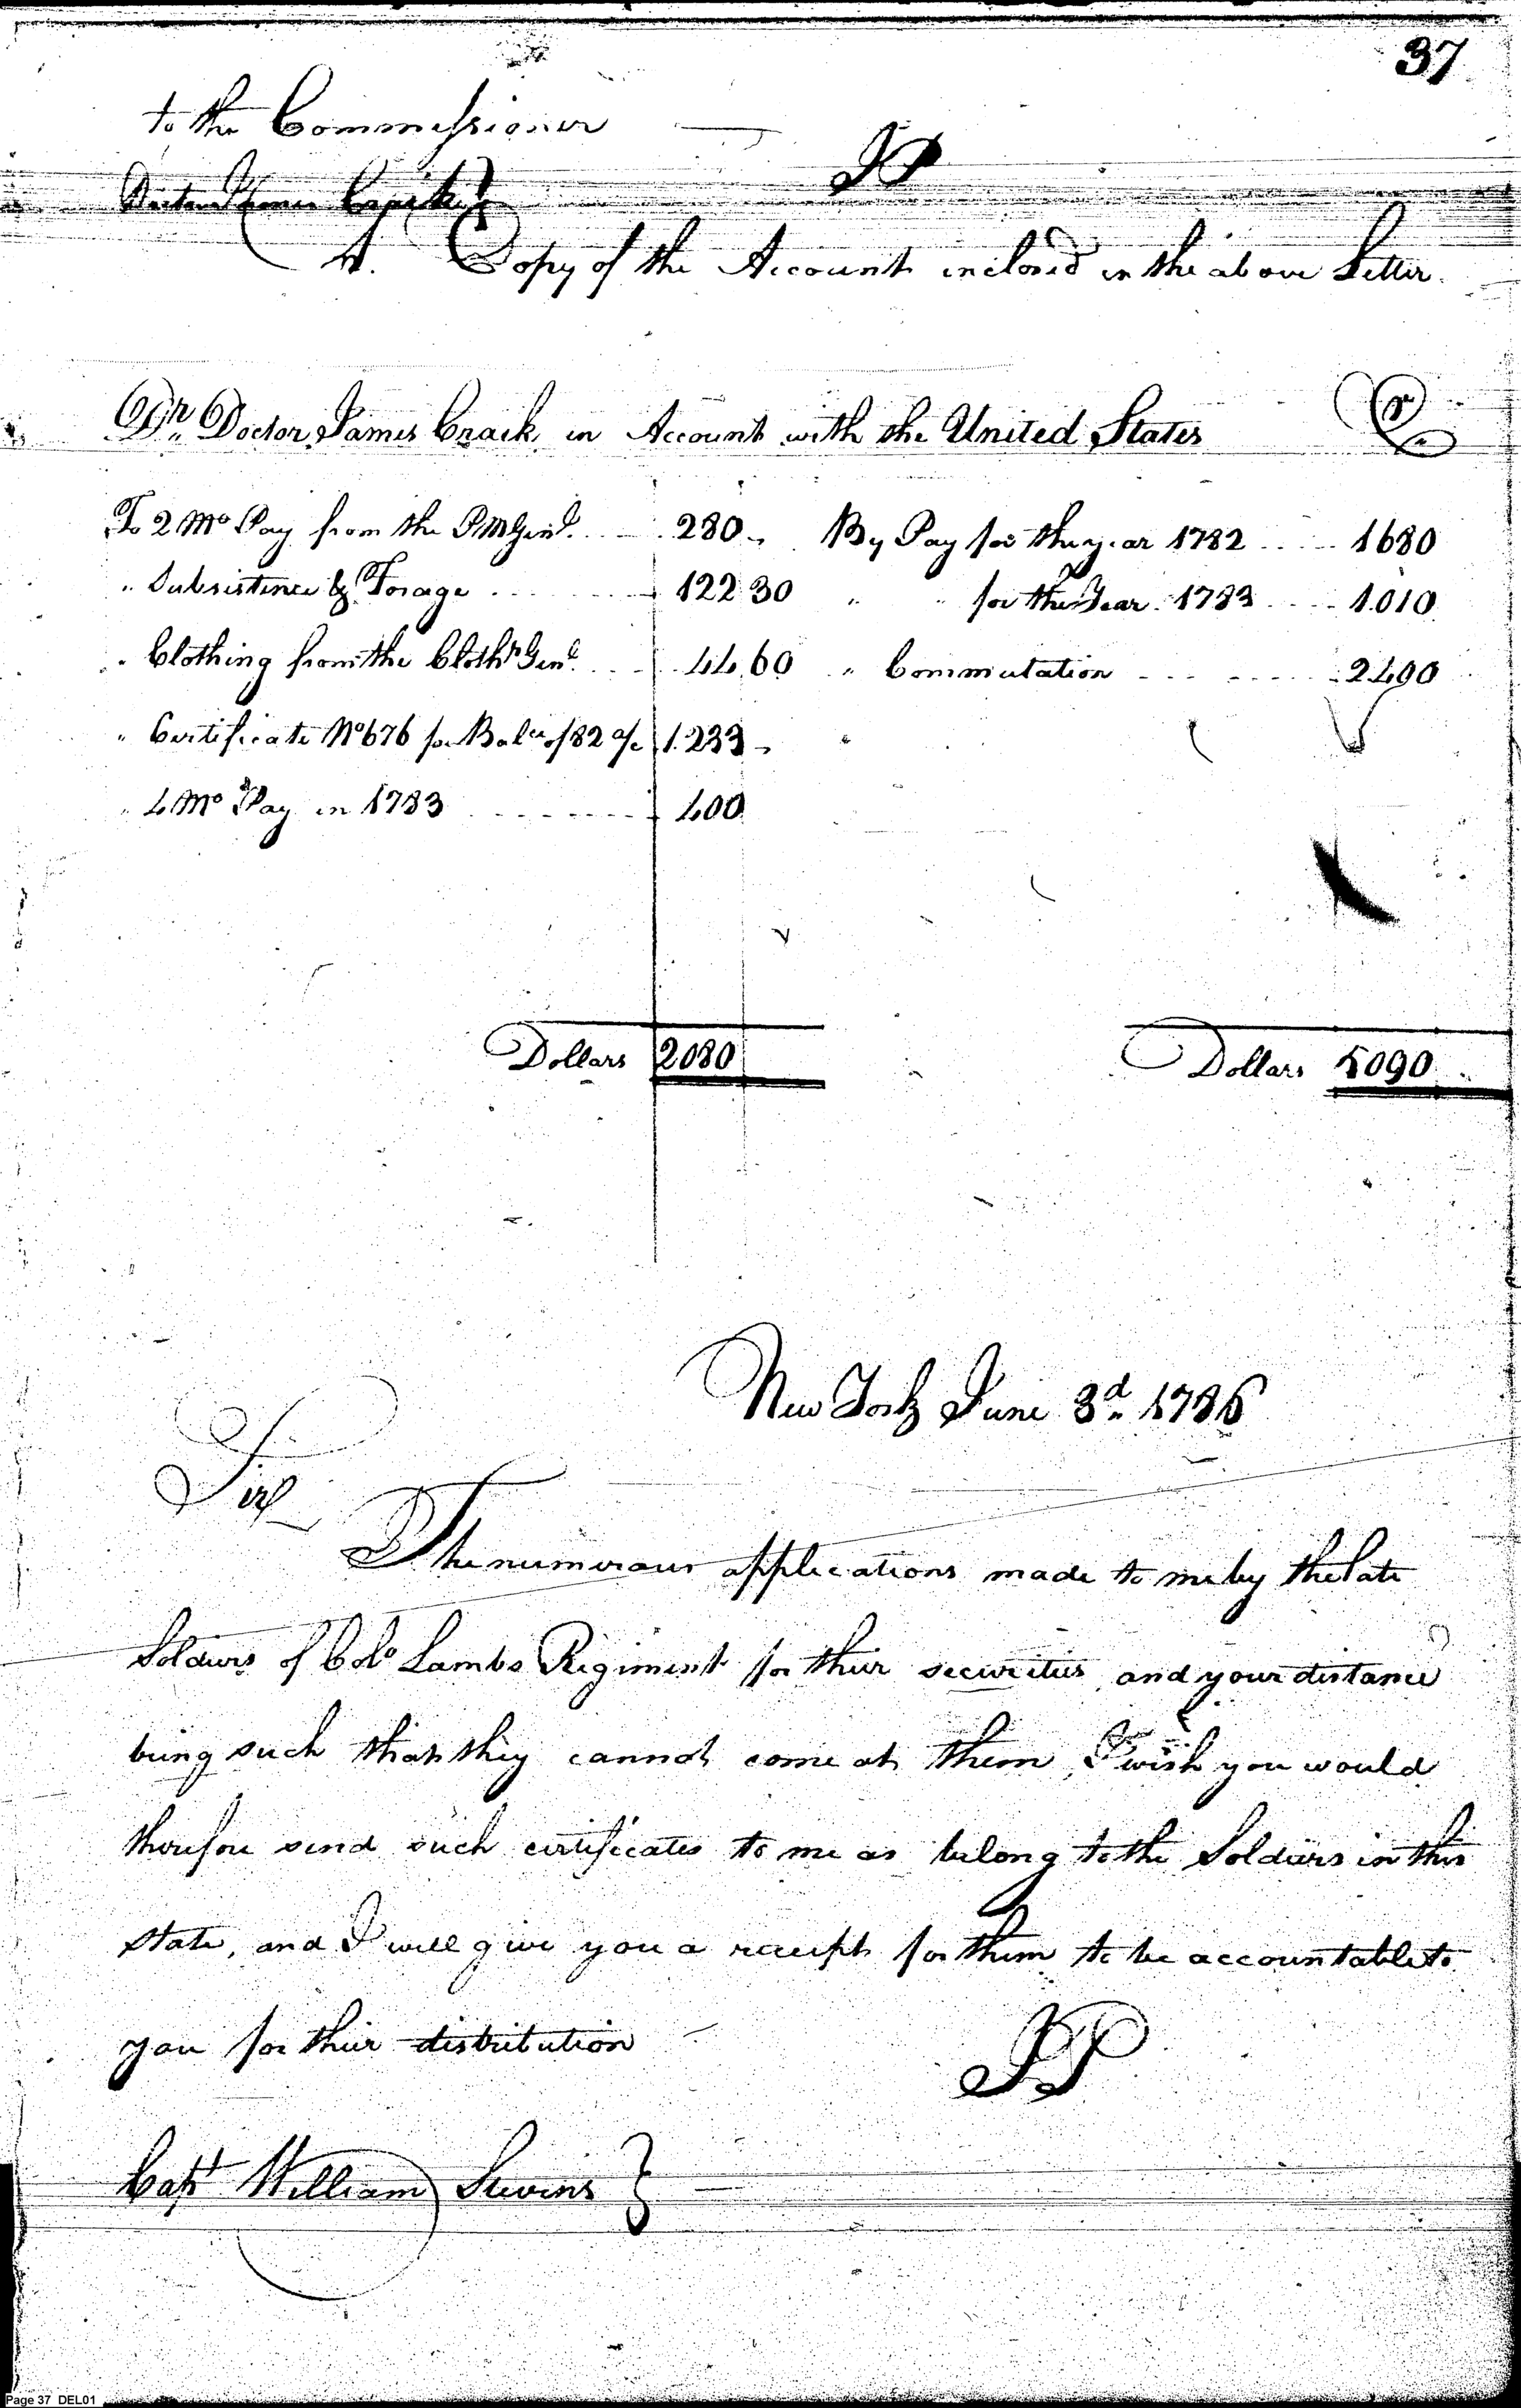 37
to the Commissioner
JP
Doctor James Craik
A. Copy of the Account inclosed in the above Letter.
Dr. Doctor James Craik in Account with the United States Cr
To 2 Mo Pay from the P.M Genl. 280 " By Pay for the year 1782 1680
" Subsistence & Forage 122 30 " " for the Year 1783 1010
" Clothing from the Clothr Genl. 44 60 " Commutation 2400
" Certificate No 676 for Balce of 82 a/c 1.233 "
" 4 Mo Pay in 1783 400
Dollars 2080 Dollars 5090
New York June 3d. 1786
Sir
The numerous applications made to me by the late
Soldiers of Colo Lambs Regiment for their securities and your distance
being such that they cannot come at them, I wish you would
therefore send such certificates to me as belong to the Soldiers in this
state, and I will give you a receipt for them to be accountable to
you for their distribution
JP
Capt William Stevens
Page 37 DEL01